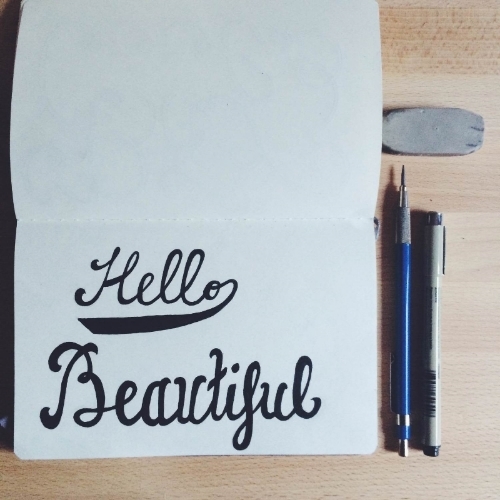 Hello
Beautiful